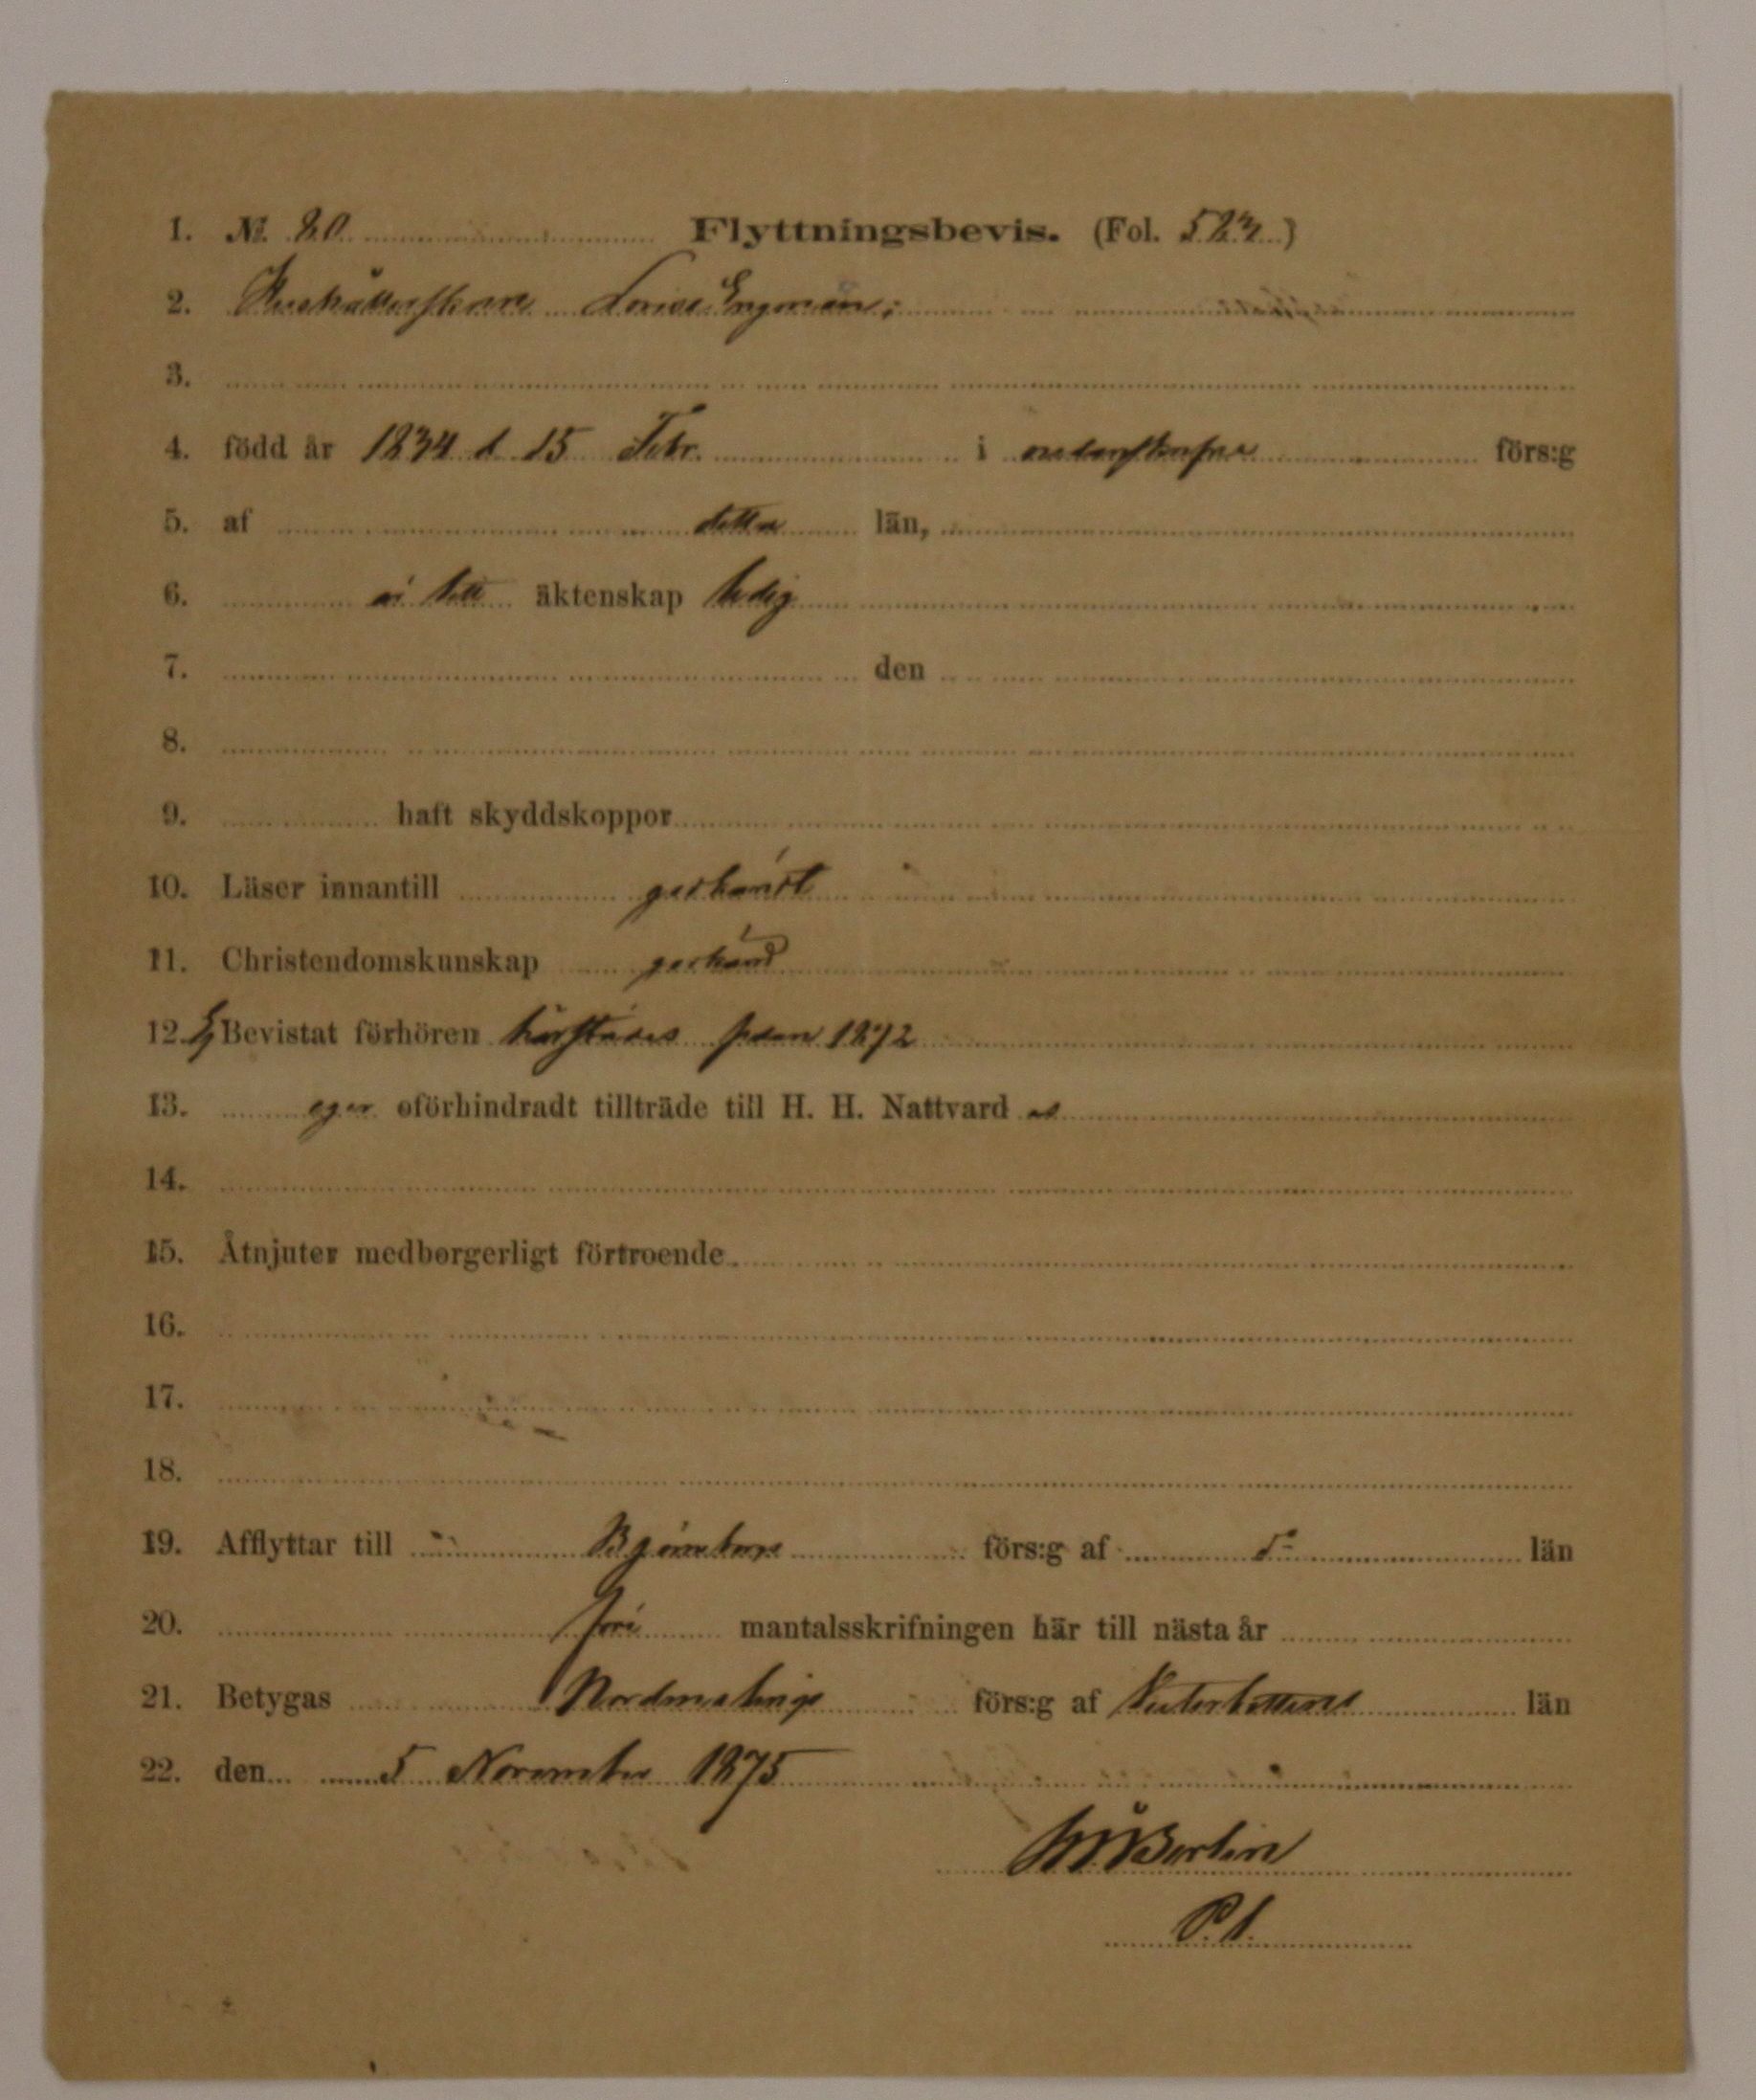 1. №. 80. Flyttningsbevis. (Fol. 522.)
2. Hushållerskan Lovisa Engman;
3.
4. född år 1834 d 15 Febr. i förs:g
5. af detta län,
6. äktenskap ledig
7. den
8.
9. haft skyddskoppor
10. Läser innantill godkändt
11. Christendomskunskap godkänd
12. Ej Bevistat förhören härstädes sedan 1872
13. eger oförhindradt tillträde till H. H. Nattvard
14.
15. Åtnjuter medborgerligt förtroende
16.
17.
18.
19. Afflyttar till förs:g af län
20. mantalsskrifningen här till nästa år
21. Betygas Nordmalings förs:g af Vesterbottens län
22. den 5 November 1875
Berlin